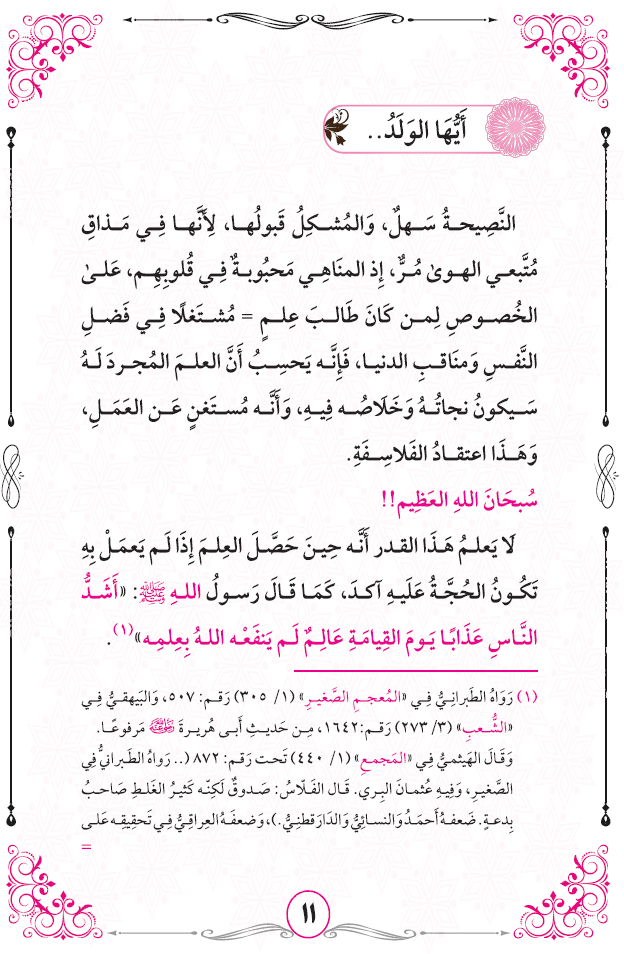 أَيُّهَا الوَلَدُ..
النَّصِيحةُ سَهلٌ، وَالمُشكِلُ قَبولُها، لِأَنَّها فِي مَذاقِ
مُتَّبعي الهوىٰ مُرٌّ، إِذ المنَاهِي مَحبُوبةٌ فِي قُلوبِهِم، عَلىٰ
الخُصوصِ لِمن كَانَ طَالبَ عِلمٍ = مُشتَغلًا فِي فَضلِ
النَّفسِ وَمنَاقبِ الدنيا، فَإِنَّه يَحسِبُ أَنَّ العلمَ المُجردَ لَهُ
سَيكونُ نجاتُهُ وَخَلَاصُه فِيهِ، وَأَنَّه مُستَغنٍ عَن العَمَلِ،
وَهَذَا اعتقادُ الفَلَاسِفَةِ.
سُبحَانَ اللهِ العَظِيم!!
لَا يَعلمُ هَذَا القدر أَنَّه حِينَ حَصَّلَ العِلمَ إِذَا لَم يَعمَلْ بِهِ
تَكُونُ الحُجَّةُ عَلَيهِ آكدَ، كَمَا قَالَ رَسولُ اللهِ ﷺ: «أَشَدُّ
النَّاسِ عَذَابًا يَومَ القِيامَةِ عَالِمٌ لَم يَنفَعْه اللهُ بِعِلمِه»(١).
(١) رَوَاهُ الطَبرانِيُّ فِي «المُعجمِ الصَّغيرِ» (١/ ٣٠٥) رَقم: ٥٠٧، وَالبَيهقيُّ فِي
«الشُّعبِ» (٣/ ٢٧٣) رَقم:١٦٤٢، مِن حَديثِ أَبى هُريرةَ رضي الله عنه مَرفوعًا.
وَقَالَ الهَيثميُّ فِي «المَجمعِ» (١/ ٤٤٠) تَحت رَقم: ٨٧٢ (.. رَواهُ الطَبرانيُّ فِي
الصَّغيرِ، وَفِيهِ عُثمانَ البِري. قَال الفَلَّاسُ: صَدوقٌ لَكِنَّه كَثيرُ الغَلطِ صَاحبُ
بِدعةٍ. ضَعفهُ أَحمَدُ وَالنسائِيُّ وَالدَارَقطنِيُّ.)، وَضعفَهُ العِراقيُّ فِي تَحقِيقِه عَلى
=
١١